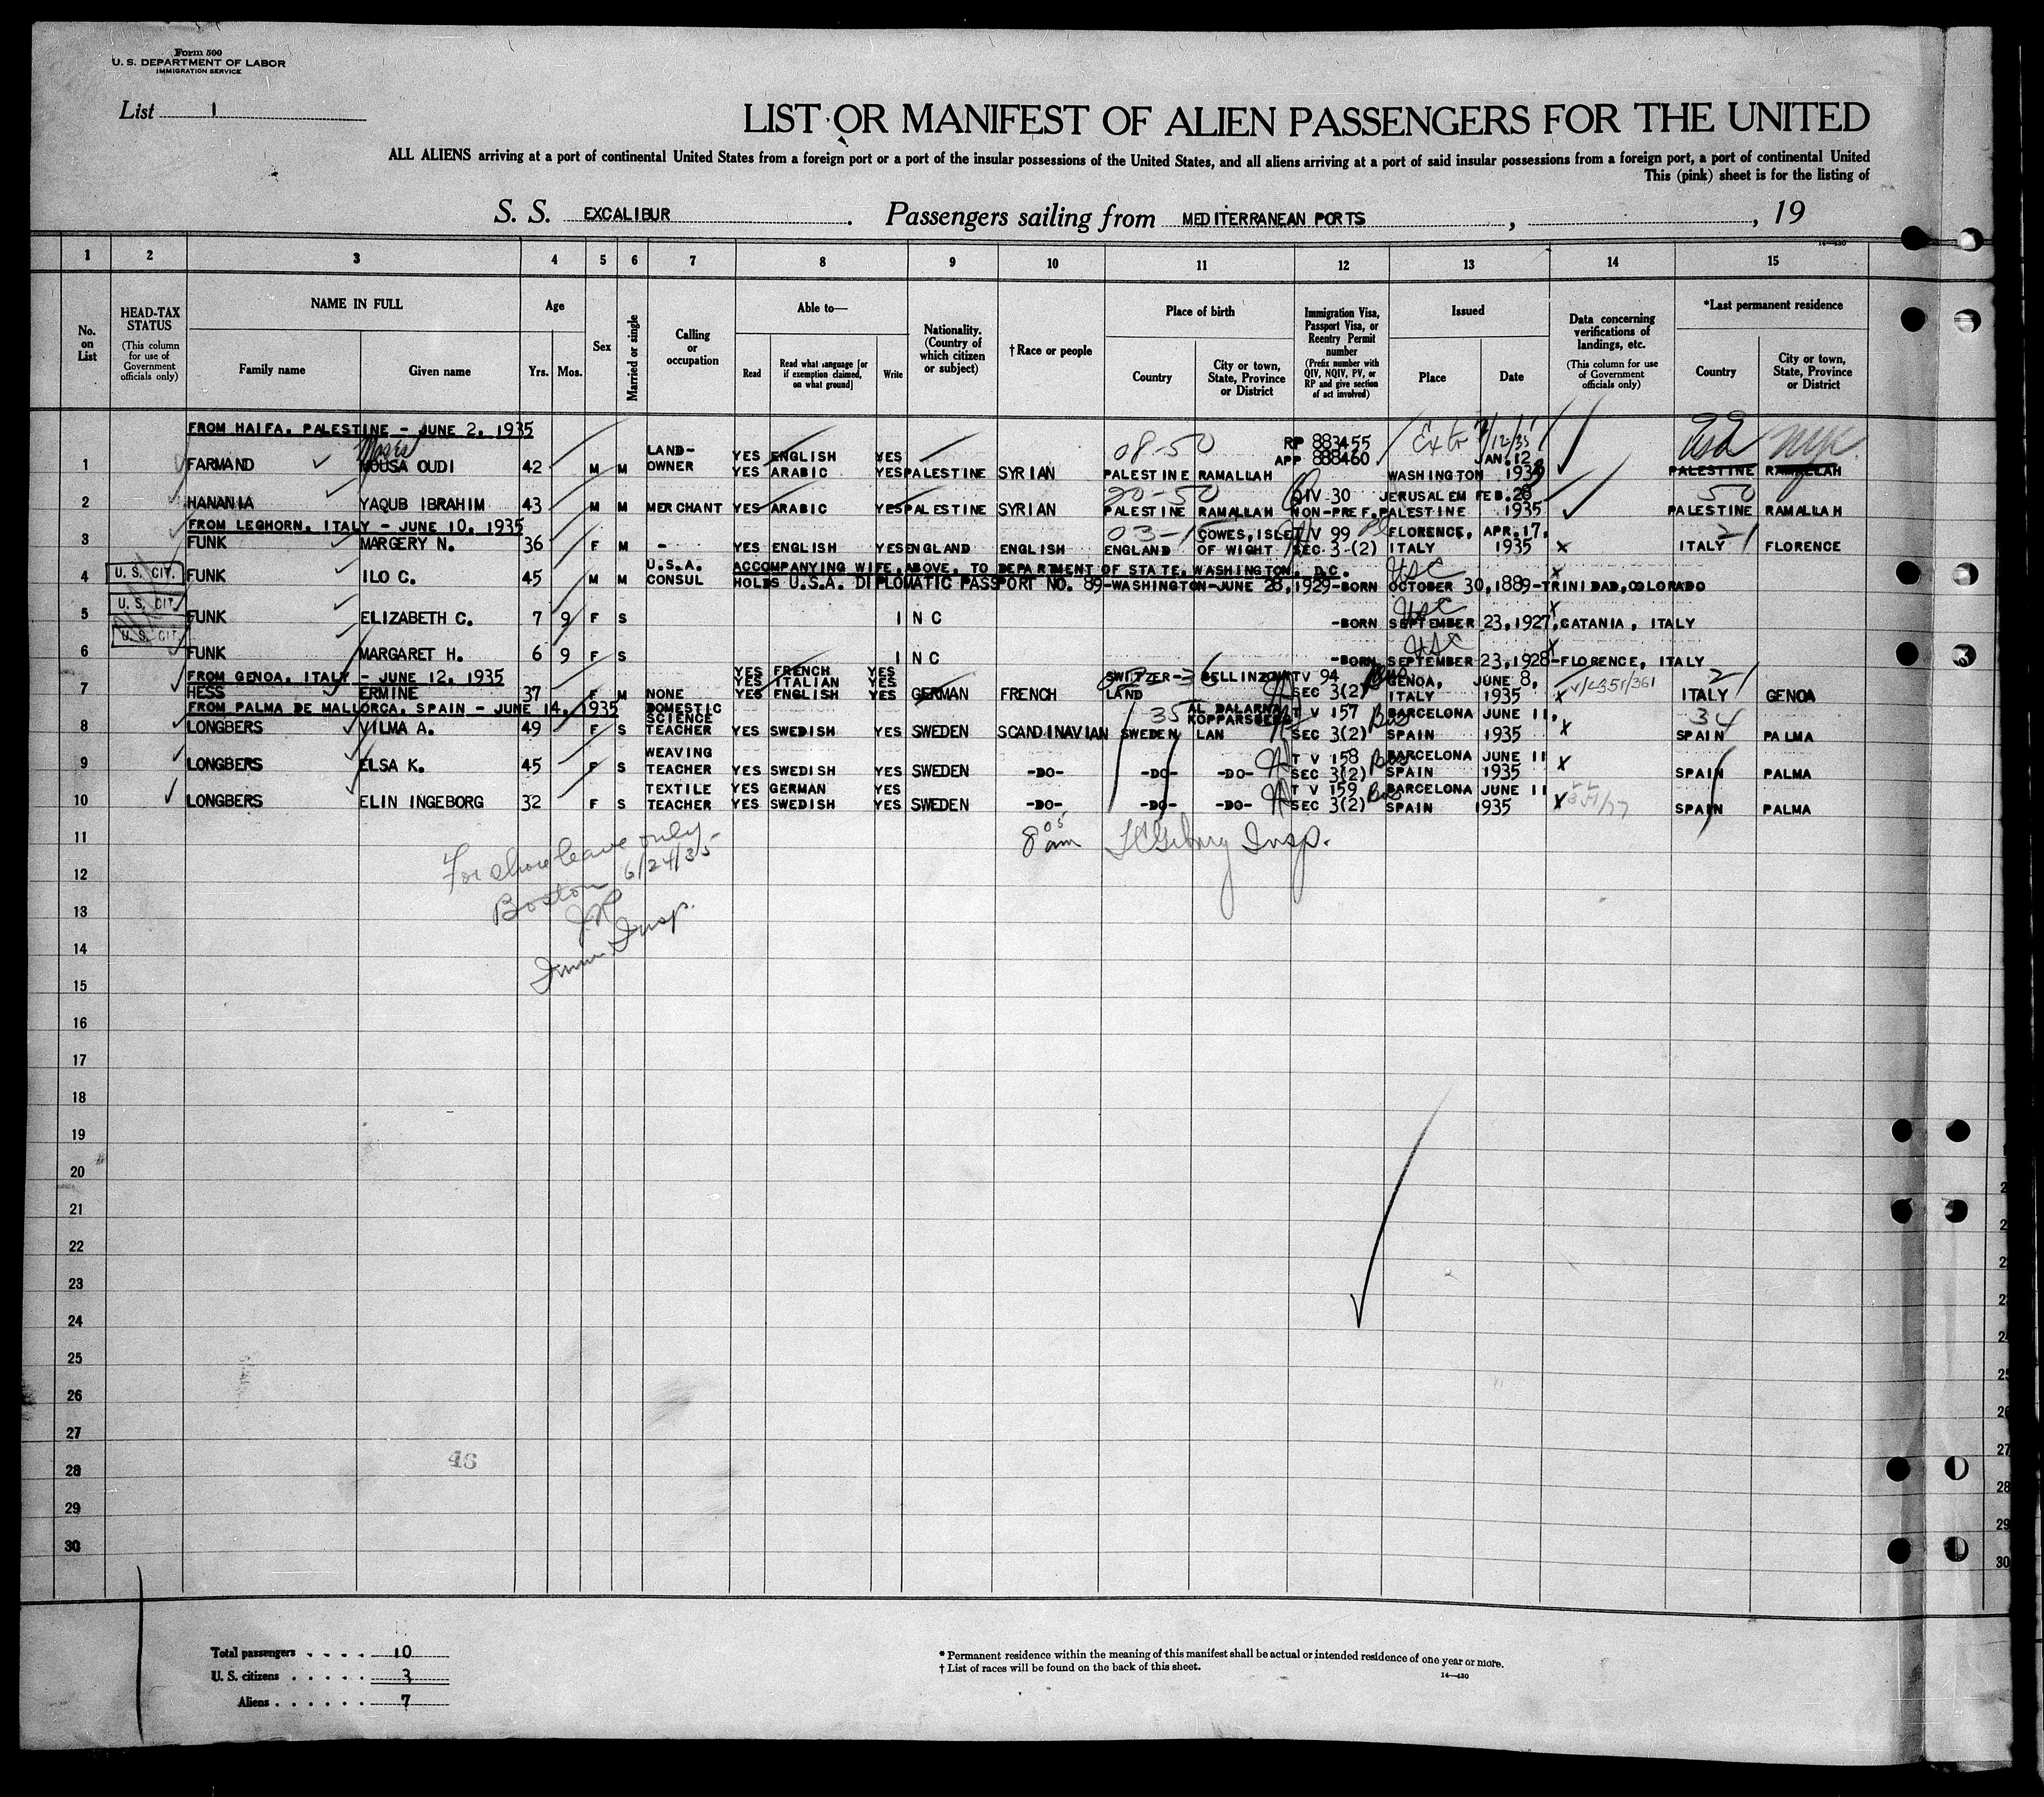 Form 500
U. S. DEPARTMENT OF LABOR
IMMIGRATION SERVICE
List 1
LIST OR MANIFEST OF ALIEN PASSENGERS FOR THE UNITED
ALL ALIENS arriving at a port of continental United States from a foreign port or a port of the insular possessions of the United States, and all aliens arriving at a port of said insular possessions from a foreign port, a port of continental United
This (pink) sheet is for the listing of
S. S. EXCALIBUR. Passengers sailing from MEDITERRANEAN PORTS, , 19
14—430
1 2 3 4 5 6 7 8 9 10 11 12 13 14 15
No. on List
HEAD-TAX STATUS (This column for use of Government officials only)
NAME IN FULL
Family name Given name
Age
Yrs. Mos.
Sex
Married or single
Calling or occupation
Able to—
Read Read what language [or if exemption claimed, on what ground] Write
Nationality. (Country of which citizen or subject)
†Race or people
Place of birth
Country City or town, State, Province or District
Immigration Visa, Passport Visa, or Reentry Permit number (Prefix number with QIV, NQIV, PV, or RP and give section of act involved)
Issued
Place Date
Data concerning verifications of landings, etc. (This column for use of Government officials only)
*Last permanent residence
Country City or town, State, Province or District
FROM HAIFA, PALESTINE - JUNE 2, 1935
Moses 08-50 RP 883455 Ext 7/12/35 USA NYK
LAND- YES ENGLISH YES APP 888460 JAN.12
1 FARMAND MOUSA OUDI 42 M M OWNER YES ARABIC YES PALESTINE SYRIAN PALESTINE RAMALLAH WASHINGTON 1935 PALESTINE RAMALLAH
20-50 QIV 30 JERUSALEM FEB.28 50
2 HANANIA YAQUB IBRAHIM 43 M M MERCHANT YES ARABIC YES PALESTINE SYRIAN PALESTINE RAMALLAH NON-PREF. PALESTINE 1935 PALESTINE RAMALLAH
FROM LEGHORN, ITALY - JUNE 10, 1935
03-15 COWES, ISLE T V 99 FLORENCE, APR.17, 21
3 FUNK MARGERY N. 36 F M - YES ENGLISH YES ENGLAND ENGLISH ENGLAND OF WIGHT SEC 3-(2) ITALY 1935 X ITALY FLORENCE
U.S.A. ACCOMPANYING WIFE, ABOVE, TO DEPARTMENT OF STATE, WASHINGTON, D.C. USC X
4 U. S. CIT. FUNK ILO C. 45 M M CONSUL HOLDS U.S.A. DIPLOMATIC PASSPORT NO. 89-WASHINGTON-JUNE 28, 1929-BORN OCTOBER 30, 1889-TRINIDAD, COLORADO
USC X
5 U. S. CIT. FUNK ELIZABETH C. 7 9 F S I N C -BORN SEPTEMBER 23, 1927, CATANIA, ITALY
USC X
6 U. S. CIT. FUNK MARGARET H. 6 9 F S I N C -BORN SEPTEMBER 23, 1928-FLORENCE, ITALY
FROM GENOA, ITALY - JUNE 12, 1935
YES FRENCH YES
YES ITALIAN YES SWITZER- BELLINZONA TV 94 GENOA, JUNE 8, 21
7 HESS ERMINE 37 F M NONE YES ENGLISH YES GERMAN FRENCH LAND SEC 3(2) ITALY 1935 X ITALY GENOA
FROM PALMA DE MALLORCA, SPAIN - JUNE 14, 1935
DOMESTIC SCIENCE 35 AL DALARNA KOPPARSBERG T V 157 BARCELONA JUNE 11, 34
8 LONGBERS VILMA A. 49 F S TEACHER YES SWEDISH YES SWEDEN SCANDINAVIAN SWEDEN LAN SEC 3(2) SPAIN 1935 X SPAIN PALMA
WEAVING T V 158 BARCELONA JUNE 11
9 LONGBERS ELSA K. 45 F S TEACHER YES SWEDISH YES SWEDEN -DO- -DO- -DO- SEC 3(2) SPAIN 1935 X SPAIN PALMA
TEXTILE YES GERMAN YES T V 159 BARCELONA JUNE 11
10 LONGBERS ELIN INGEBORG 32 F S TEACHER YES SWEDISH YES SWEDEN -DO- -DO- -DO- SEC 3(2) SPAIN 1935 X SPAIN PALMA
11
8 05 am Insp.
For shore leave only
Boston 6/24/35
Imm. Insp.
12
13
14
15
16
17
18
19
20
21
22
23
24
25
26
27
48
28
29
30
Total passengers . . . . 10
U. S. citizens . . . . . 3
Aliens . . . . . . 7
* Permanent residence within the meaning of this manifest shall be actual or intended residence of one year or more.
† List of races will be found on the back of this sheet.
14—430